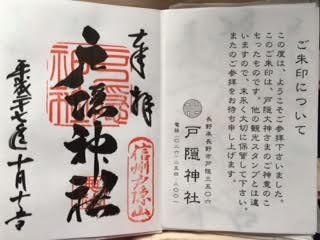 ご朱印について
この度は、ようこそご参拝下さいました。
このご朱印は、戸隠大神さまのご神意のこ
もったものです。他の観光スタンプとは違
いますので、末永く大切に保管して下さい。
またのご参拝をお待ち申し上げます。
長野県長野市戸隠三五〇六
戸隠神社
電話 〇二六-二五四-二〇〇一
奉拝
信州戸隠山
戸隠神社
平成二十七年十月